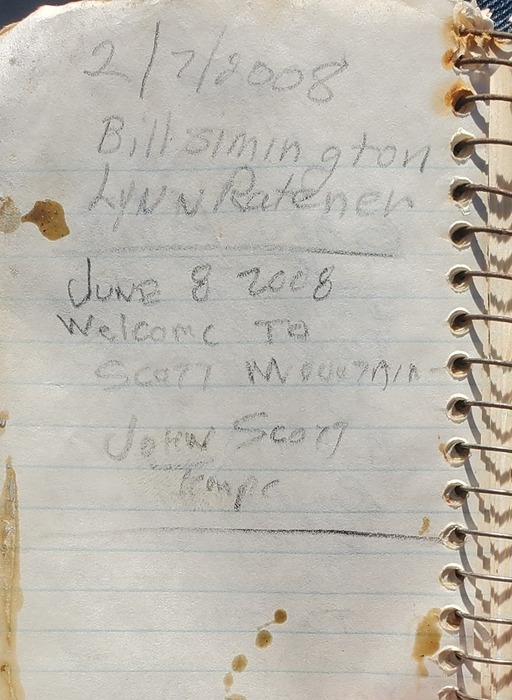 2/7/2008
Bill Simington
Lynn Ratener
JUNE 8 2008
Welcome To
Scott Mountain
JOHN Scott
Tempe